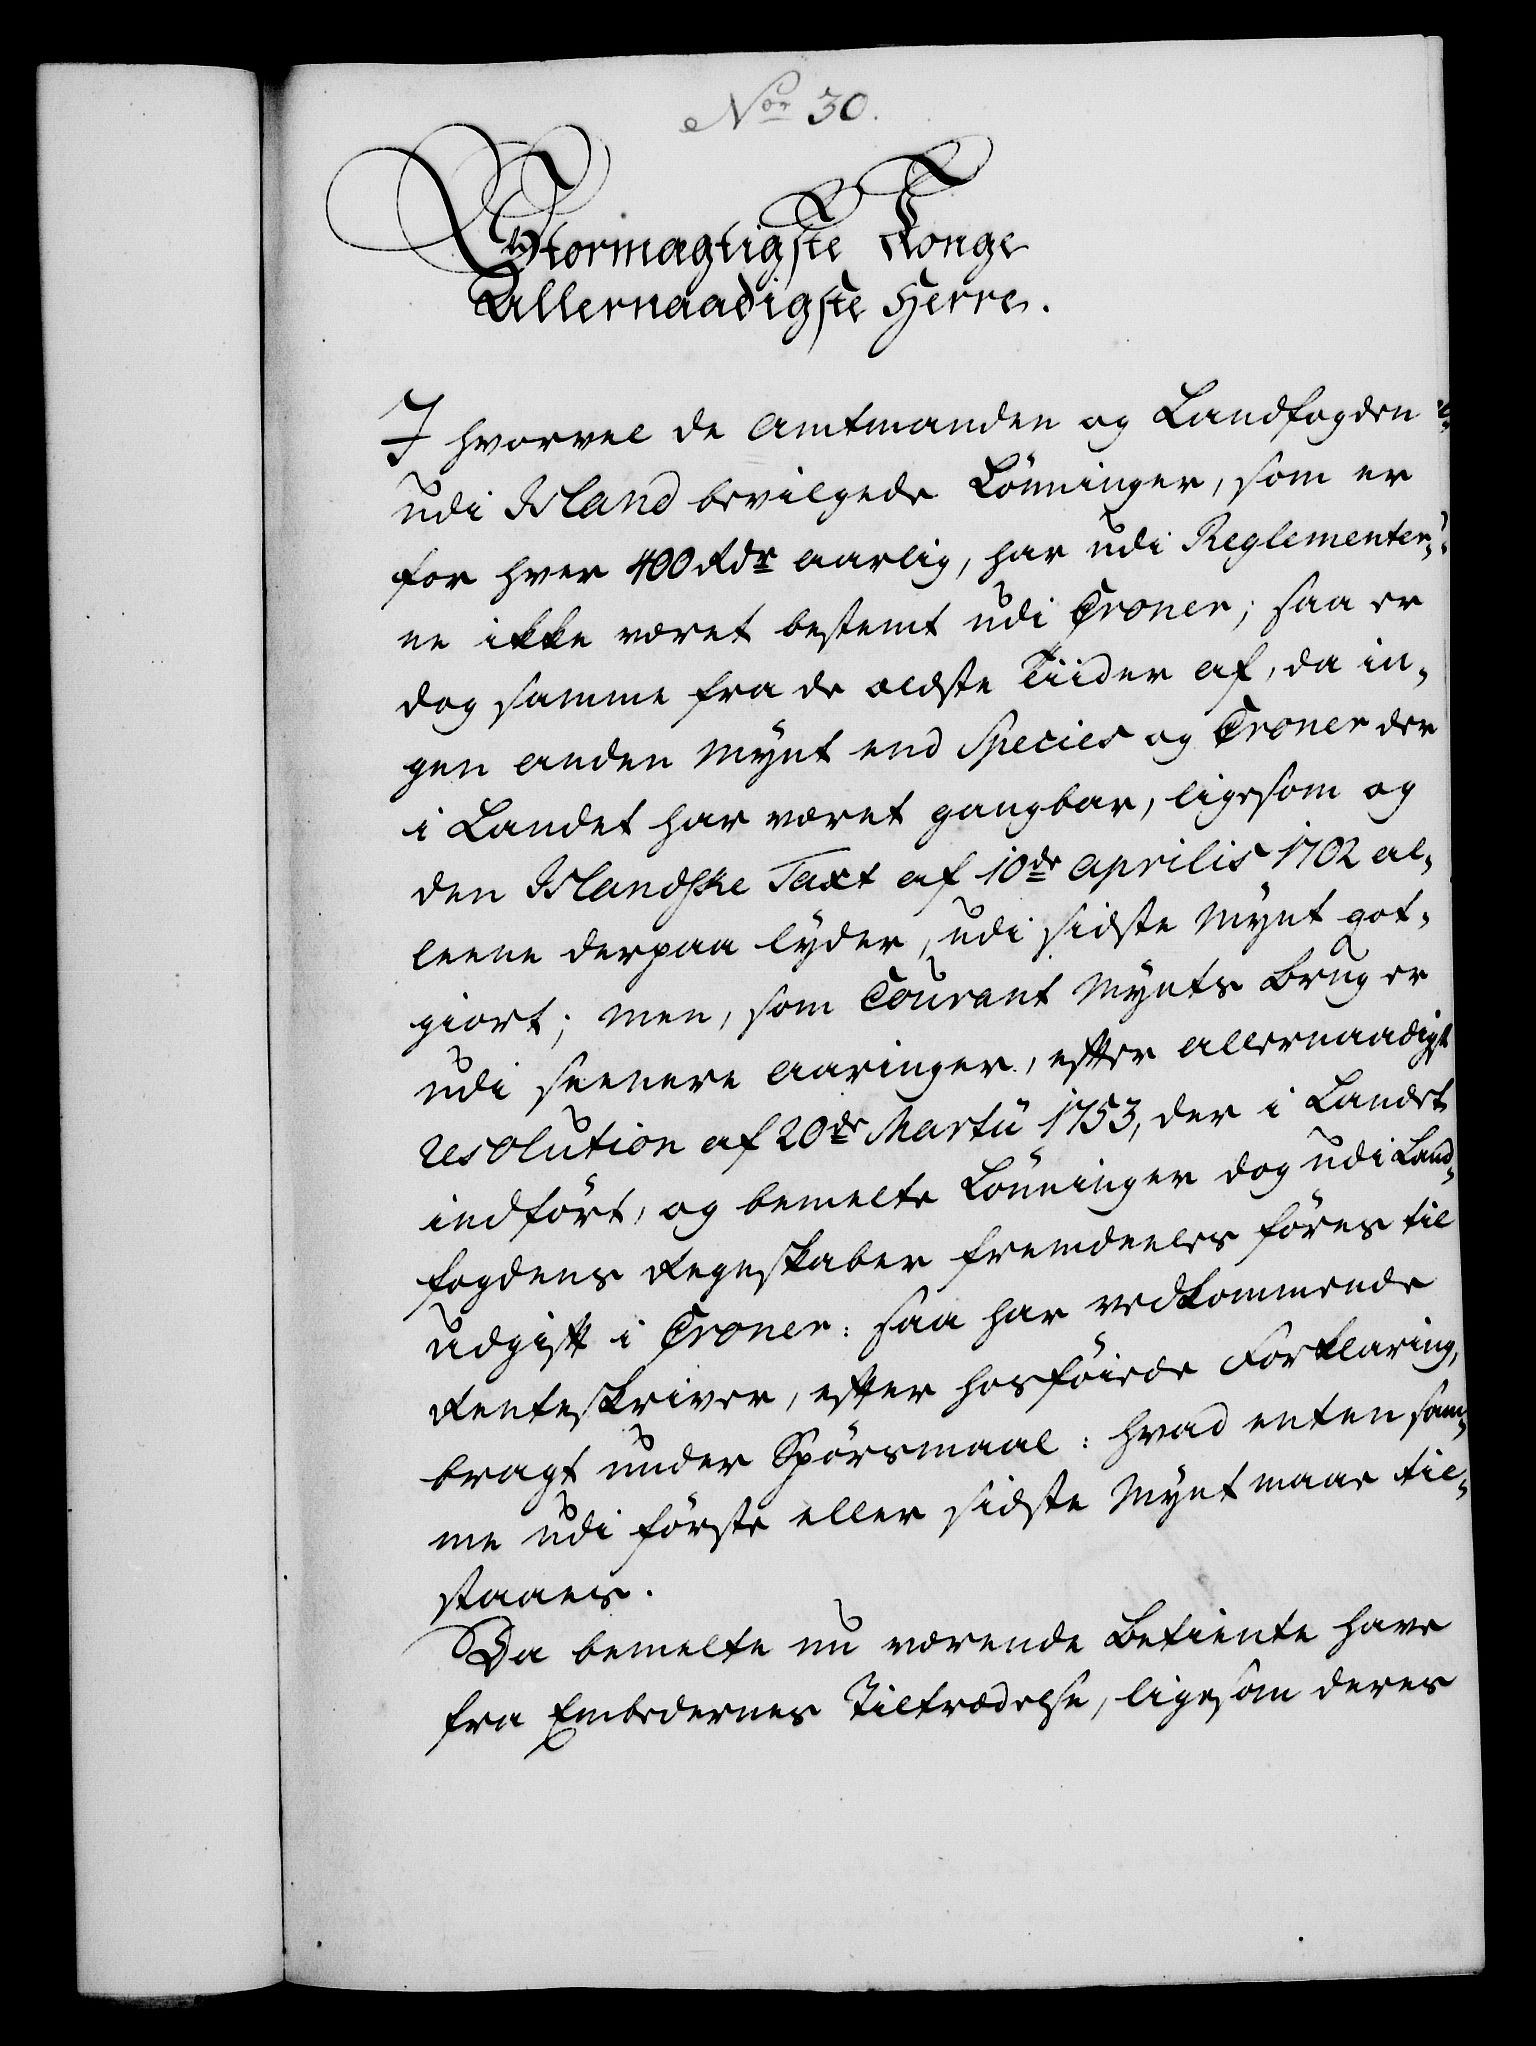 Nor 30.
Stormægtigste Konge
Allernaadigste Herre.
I hvorvel de Amtmanden og Landfogden
udi Island bevilgede Lönninger, som er
for hver 400 Rdr aarlig, har udi Reglementer-
ne ikke været bestemt udi Croner; saa er
dog samme fra de ældste Tiider af, da in-
gen anden Mÿnt end Species og Croner der
i Landet har været gangbar, ligesom og
den Islandske Taxt af 10de Aprilis 1702 al-
leene derpaa lÿder, udi sidste Mÿnt got-
giort; men, som Courant Mÿnts Brug er
udi seenere Aaringer, efter allernaadigst
Resolution af 20de Martii 1753, der i Landet
indfört, og bemelte Lönninger dog udi Land-
fogdens Regnskaber fremdeeles föres til
Udgift i Croner: saa har vedkommende
Renteskriver, efter hosföiede Forklaring,
bragt under Spörsmaal: hvad enten sam-
me udi förste eller sidste Mÿnt maae til-
staaes.
Da bemelte nu værende Betiente have
fra Embedernes Tiltrædelse, ligesom deres